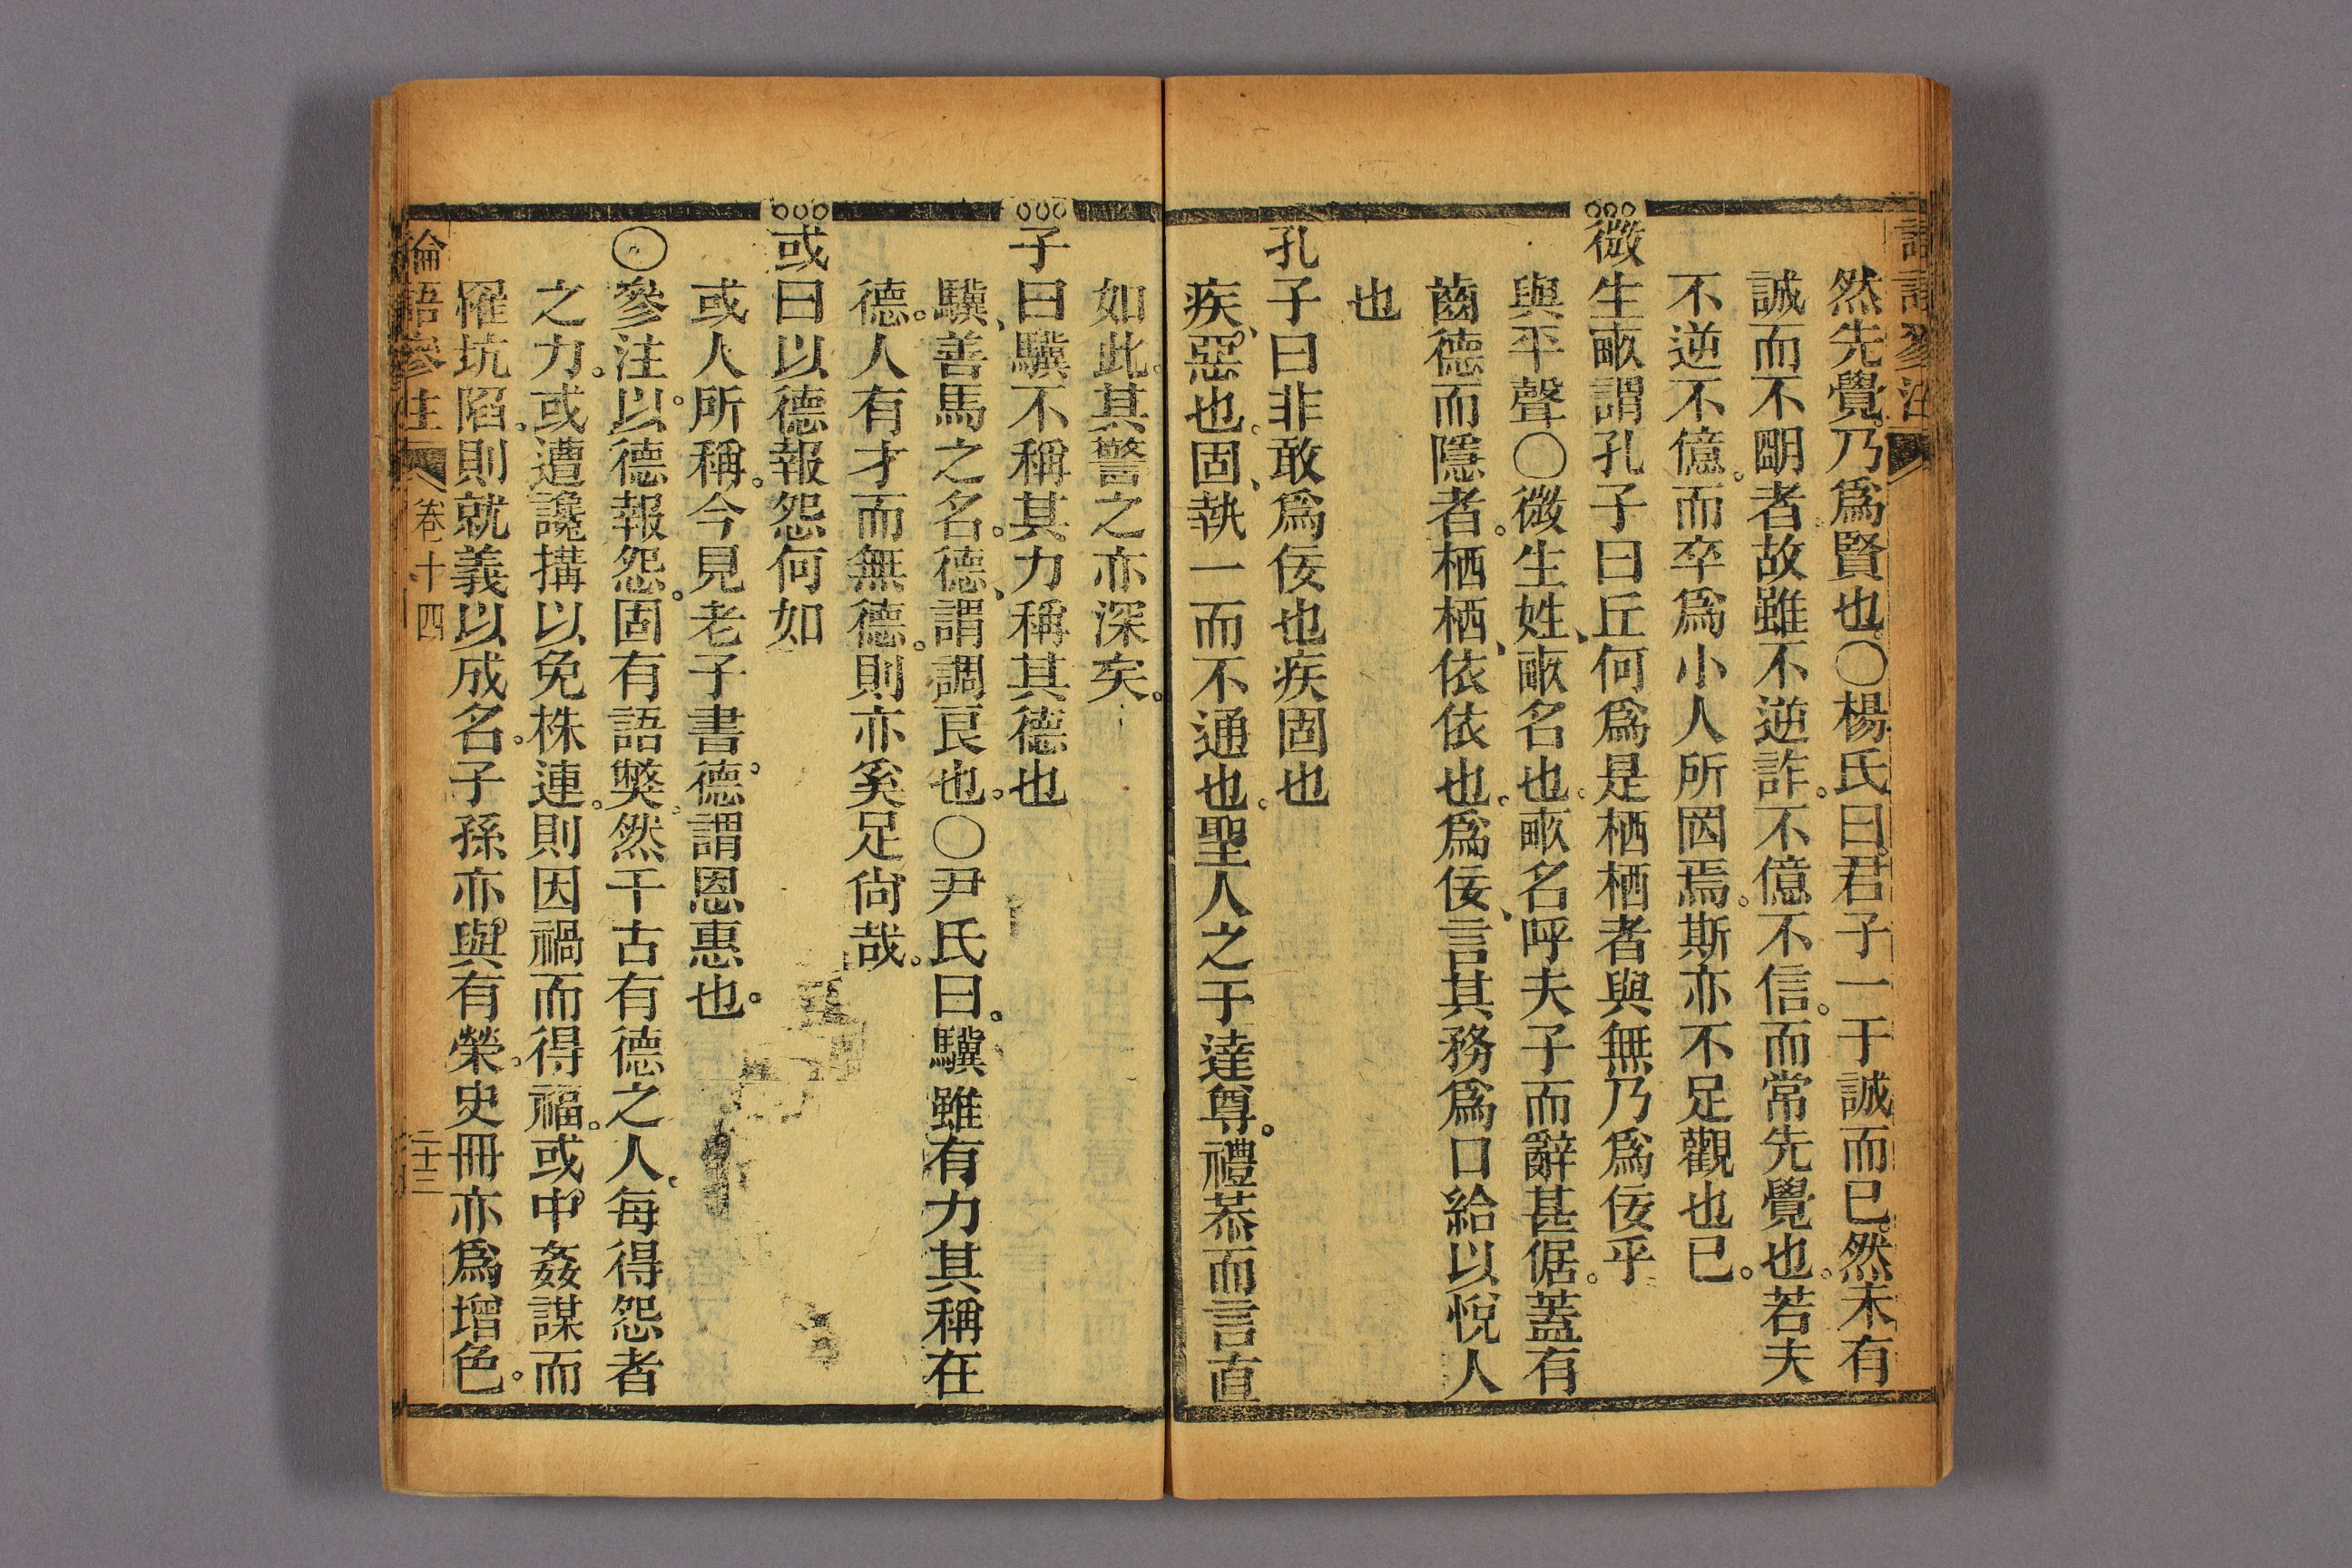 然先覺。乃爲賢也。〇楊氏曰。君子一于誠而已。然未有
誠而不朙者。故雖不逆詐。不億不信。而常先覺也。若夫
不逆不億。而卒爲小人所罔焉。斯亦不足觀也已。
微生畝謂孔子曰丘何爲是栖栖者與無乃爲佞乎
與平聲〇微生姓、畝名也。畝名呼夫子而辭甚倨。蓋有
齒德而隱者。栖栖、依依也。爲佞、言其務爲口給以悅人
也
孔子曰非敢爲佞也疾固也
疾、惡也。固、執一而不通也。聖人之于達尊。禮恭而言直
如此。其警之亦深矣。
子曰驥不稱其力稱其德也
驥、善馬之名。德、謂調良也。〇尹氏曰。驥雖有力其稱在
德。人有才而無德。則亦奚足尙哉。
或曰以德報怨何如
或人所稱。今見老子書。德。謂恩惠也。
〇參注以。德報怨。固有語獘。然千古有德之人。每得怨者
之力。或遭讒搆以免株連。則因禍而得福。或中姦謀而
罹坑陷。則就義以成名。子孫亦與有榮。史冊亦爲增色。
倫語參注 卷十四 二十三